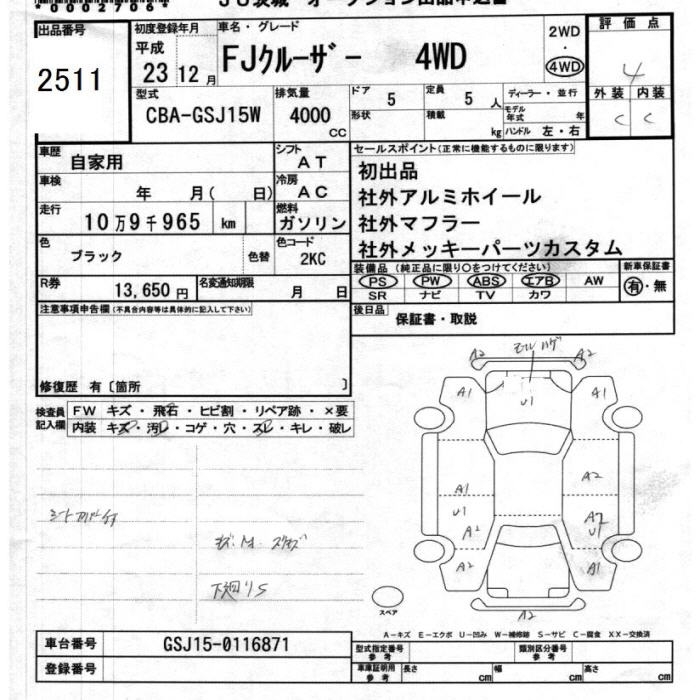 *0002706*
JU茨城 オークション出品申込書
出品番号
2511
初度登録年月
平成
23 12月
車名・グレード
FJクルーザー 4WD
2WD
・
4WD
評価点
4
外装 内装
C C
型式
CBA-GSJ15W
排気量
4000
CC
ドア 5
定員 5 人
ディーラー・並行
形状
積載 kg
モデル年式 年
ハンドル 左・右
車歴
自家用
シフト
AT
車検
年 月( 日)
冷房
AC
走行
10万9千965 km
燃料
ガソリン
色
ブラック
色替
色コード
2KC
R券
13,650円
名変通知期限
月 日
セールスポイント(正常に機能するものに限ります)
初出品
社外アルミホイール
社外マフラー
社外メッキーパーツカスタム
装備品 (純正品に限り○をつけてください)
新車保証書
PS PW ABS エアB AW
SR ナビ TV カワ
有・無
後日品
保証書・取説
注意事項申告欄(不具合内容等は具体的に記入して下さい)
修復歴 有〔箇所 〕
検査員
記入欄
FW キズ・飛石・ヒビ割・リペア跡・×要
内装 キズ・汚レ・コゲ・穴・スレ・キレ・破レ
下廻りS
A2 モールハゲ A2
A1 U1 A1
A1 A2
U1
A2 A2
U1
A2 A1
A2
スペア
A−キズ E−エクボ U−凹み W−補修跡 S−サビ C−腐食 XX−交換済
車台番号
GSJ15-0116871
登録番号
型式指定番号
参考
類別区分番号
参考
車庫証明用
参考
長さ cm
幅 cm
高さ cm